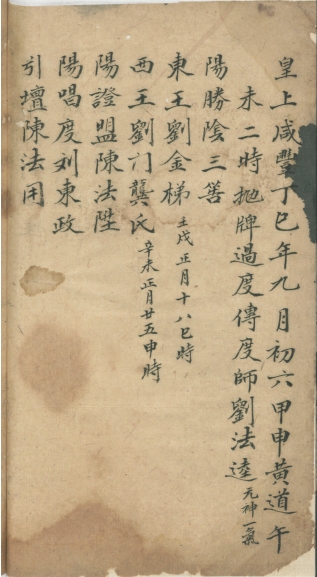 皇上咸豐丁巳年九月初六甲申黃道午
未二時抛牌過度傳度師劉法逵元神一氣
陽勝陰三筶
東王劉金梯壬戌正月十八巳時
西王劉门龔氏辛未正月廿五申時
陽證盟陳法陞
陽唱度刘東政
引壇陳法用